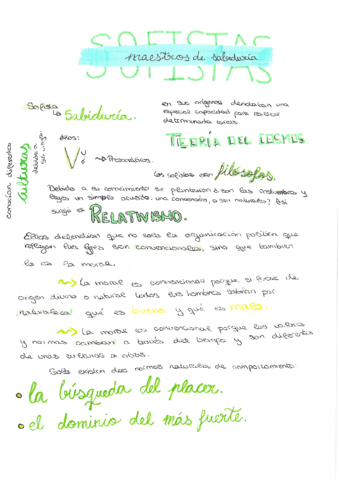 SOFISTAS
maestros de sabiduría
SOFISTAS
Sofista
↳ Sabiduría.
en sus orígenes denotaban una
especial capacidad para realizar
determinadas tareas.
conocían diferentes
culturas
debido a
sus
viajes:
TEORÍA DEL COSMOS
~> Presocráticos.
los sofistas son filósofos.
Debido a su conocimiento se plantearon si son las costumbres y
leyes un simple acuerdo, una convención, o son naturales? Así
surgió el RELATIVISMO.
Ellos defendían que no solo la organización política que
reflejan las leyes son convencionales, sino que también
lo es la moral.
~> La moral es convencional porque si fuese de
origen divino o natural todos los hombres sabrían por
naturaleza qué es bueno y qué es malo.
~> La moral es convencional porque los valores
y normas cambian a través del tiempo y son diferentes
de unas culturas a otras.
Solo existen dos normas naturales de comportamiento:
• la búsqueda del placer.
• el dominio del más fuerte.